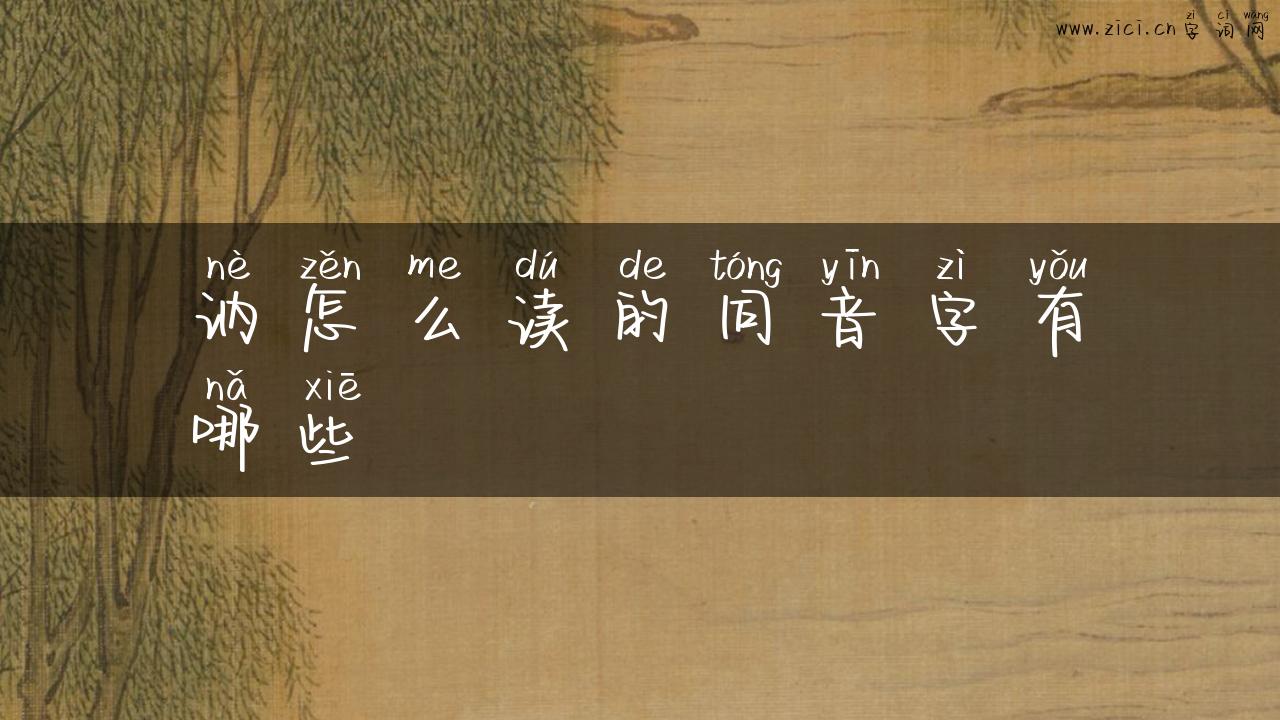 zì cí wǎng
www.zici.cn字词网
nè zěn me dú de tóng yīn zì yǒu
讷怎么读的同音字有
nǎ xiē
哪些